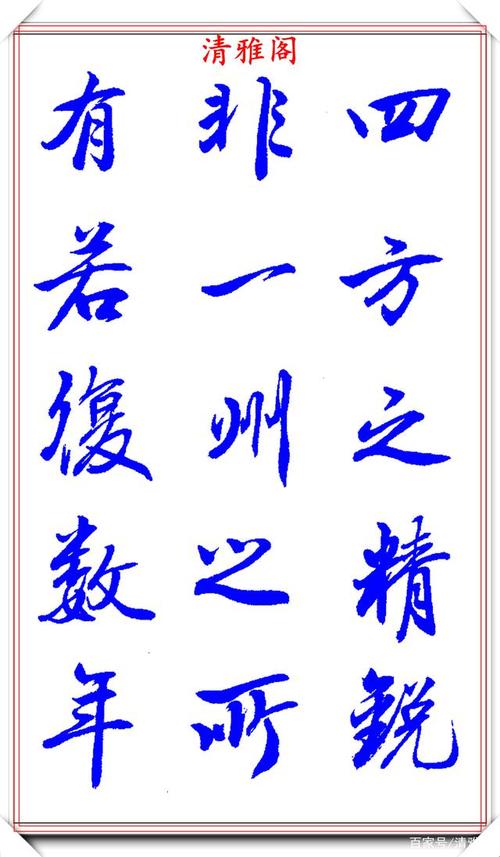 清雅阁
四方之精鋭
非一州之所
有若復数年
百家号/清雅